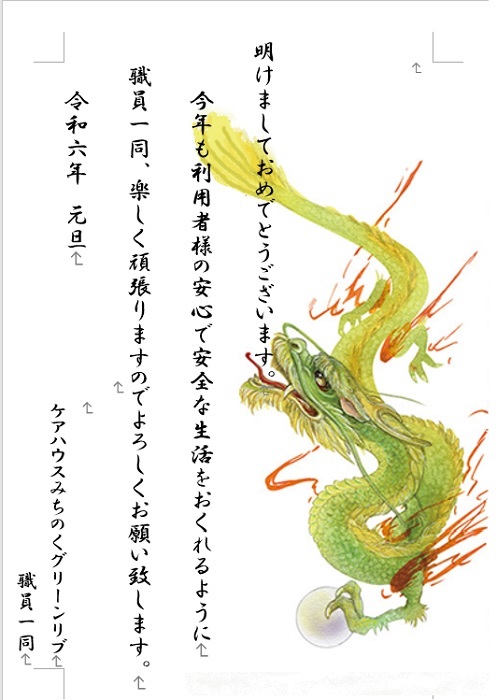 明けましておめでとうございます。
今年も利用者様の安心で安全な生活をおくれるように
職員一同、楽しく頑張りますのでよろしくお願い致します。
令和六年　元旦
ケアハウスみちのくグリーンリブ
職員一同